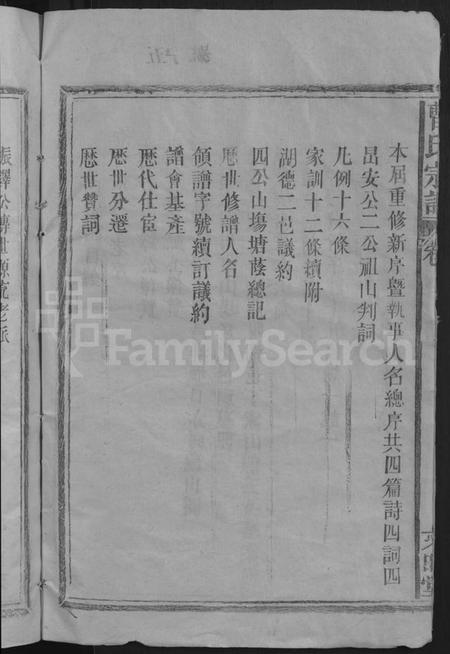 曹氏宗譜
卷
本屆重修新序暨執事人名總序共四篇詩四詞四
昌安公二公祖山判詞
凡例十六條
家訓十二條續附
湖德二邑議約
四公山塲塘蔭總記
歷世修譜人名
領譜字號續訂議約
譜會基產
歷代仕宦
歷世分遷
歷世贊詞
振鐸公傳世源流老派
FamilySearch